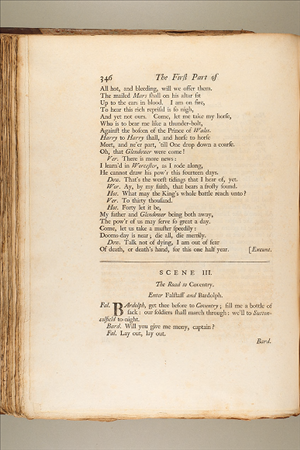 346 The First Part of
All hot, and bleeding, will we offer them.
The mailed Mars shall on his altar sit
Up to the ears in blood. I am on fire,
To hear this rich reprisal is so nigh,
And yet not ours. Come, let me take my horse,
Who is to bear me like a thunder-bolt,
Against the bosom of the Prince of Wales.
Harry to Harry shall, and horse to horse
Meet, and ne'er part, 'till One drop down a coarse.
Oh, that Glendower were come!
Ver. There is more news:
I learn'd in Worcester, as I rode along,
He cannot draw his pow'r this fourteen days.
Dow. That's the worst tidings that I hear of, yet.
Wor. Ay, by my faith, that bears a frosty sound.
Hot. What may the King's whole battle reach unto?
Ver. To thirty thousand.
Hot. Forty let it be,
My father and Glendower being both away,
The pow'r of us may serve so great a day.
Come, let us take a muster speedily:
Dooms-day is near; die all, die merrily.
Dow. Talk not of dying, I am out of fear
Of death, or death's hand, for this one half year. [Exeunt.
SCENE III.
The Road to Coventry.
Enter Falstaff and Bardolph.
Fal. BArdolph, get thee before to Coventry; fill me a bottle of
sack: our soldiers shall march through: we'll to Sutton-
colfield to-night.
Bard. Will you give me mony, captain?
Fal. Lay out, lay out.
Bard.